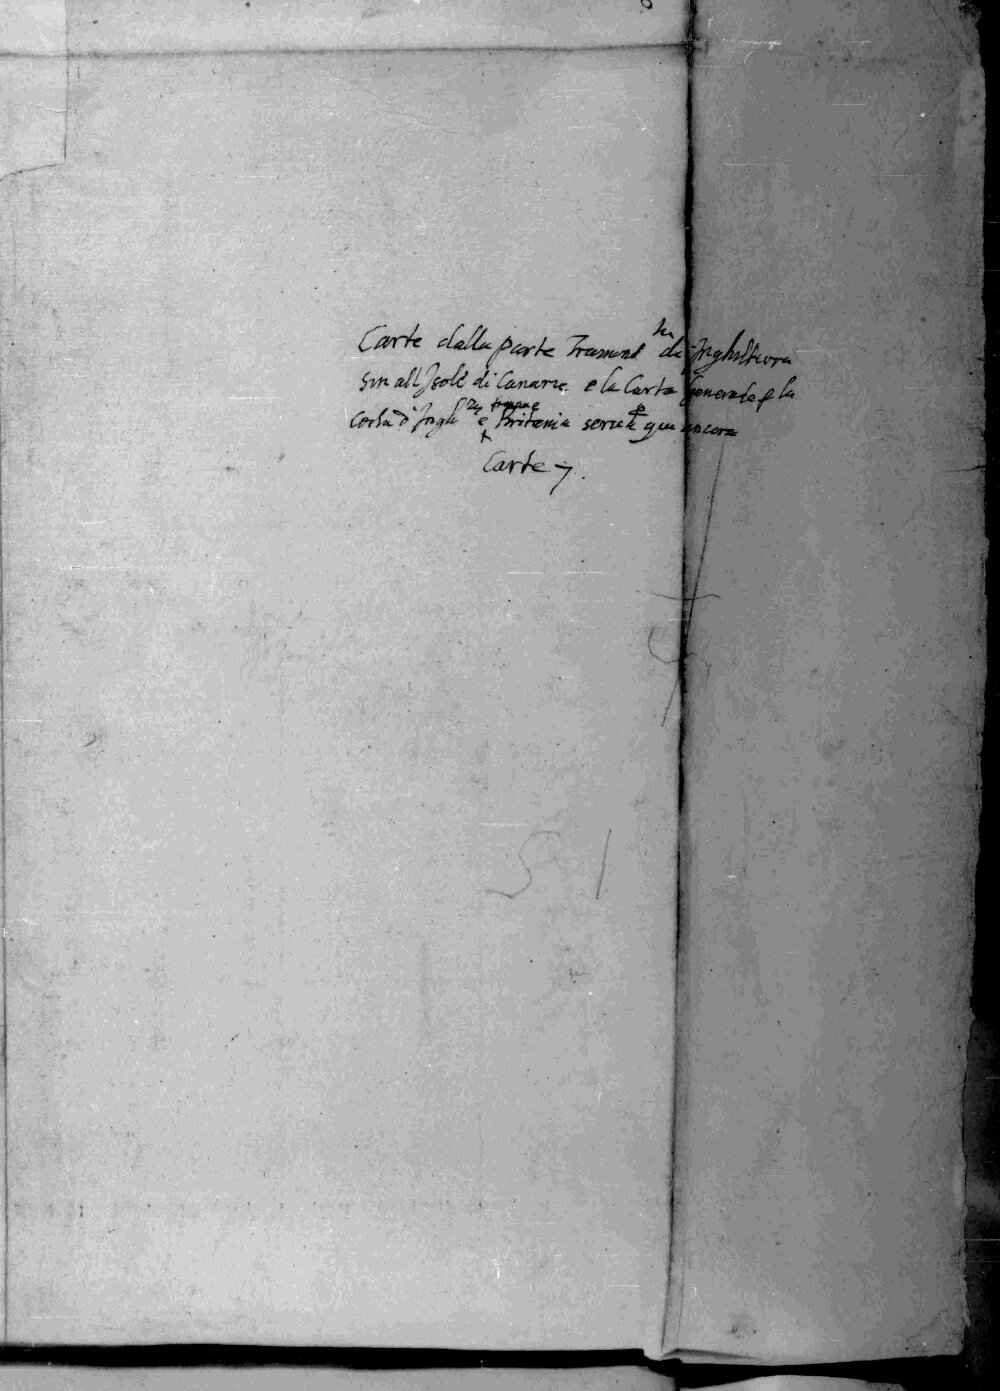 Carte dalla parte Tramont.na da Inghilterra
sin all Isole di Canarie e la Carta Generale p la
costa d'Ingh.ra e Britania serue p qui ancora
Carte 7.
51